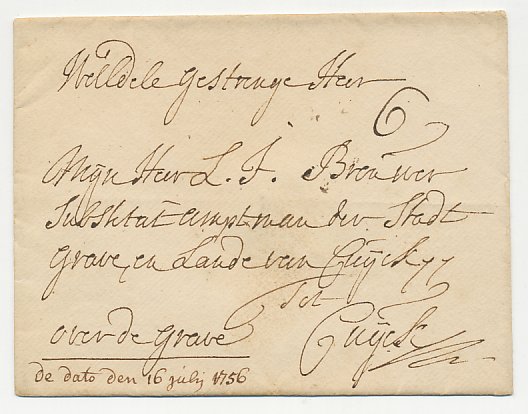 Wéldele Gestrenge Heer
6
Mijn Heer L. F. Breuwer
Substitut amptman der Stadt
Grave, en Lande van Cuijck
Tot
Cuijck
over de Grave
de dato den 16 julij 1756